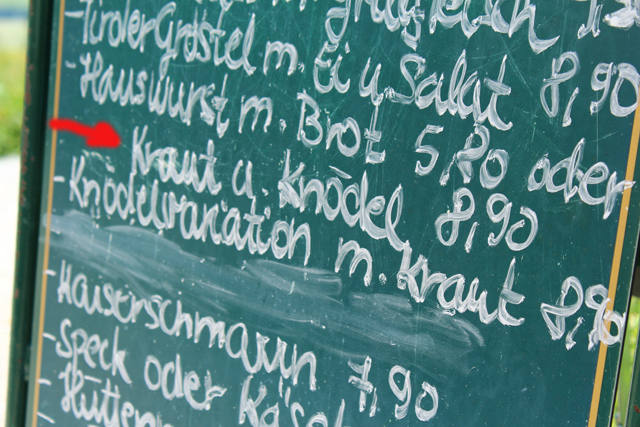 - Tiroler Gröstel m. Ei u Salat 8,90
- Hauswurst m. Brot 5,80 oder
Kraut u. Knödel 8,90
- Knödelvariation m. Kraut 8,90
- Kaiserschmarrn 7,90
- Speck oder